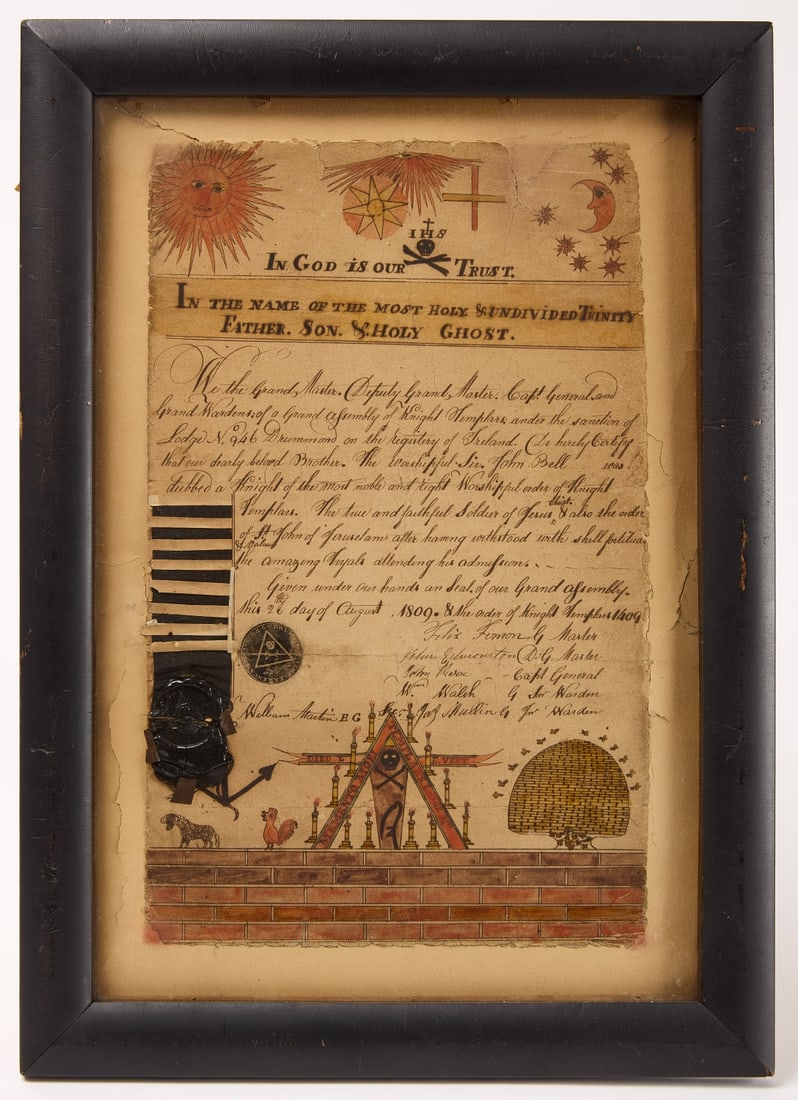 IHS
IN GOD IS OUR TRUST.
IN THE NAME OF THE MOST HOLY & UNDIVIDED TRINITY
FATHER. SON. & HOLY GHOST.
We the Grand Master. Deputy Grand Master. Capt General and
Grand Wardens, of a Grand assembly of Knight Templars under the sanction of
Lodge No. 946 Drummond on the registery of Ireland. Do hereby Certify
that our dearly beloved Brother. The worshipful Sir. John Bell was
dubbed a Knight of the most noble and right Worshipful order of Knight
Templars. The true and faithful Soldier of Jesus Christ. & also the order
of St John of Jeruselam after having withstood with skill fortitude
& Valour the amazing Tryals attending his admission.
Given under our hands an Seal of our Grand assembly.
this 26th day of August 1809. & the order of Knight Templars 1409
Felix G Master
D. G Master
John Capt General
Wm Walsh G Snr Warden
William Martin P G Jas Mullin G Jnr Warden
MEMENTO MORI